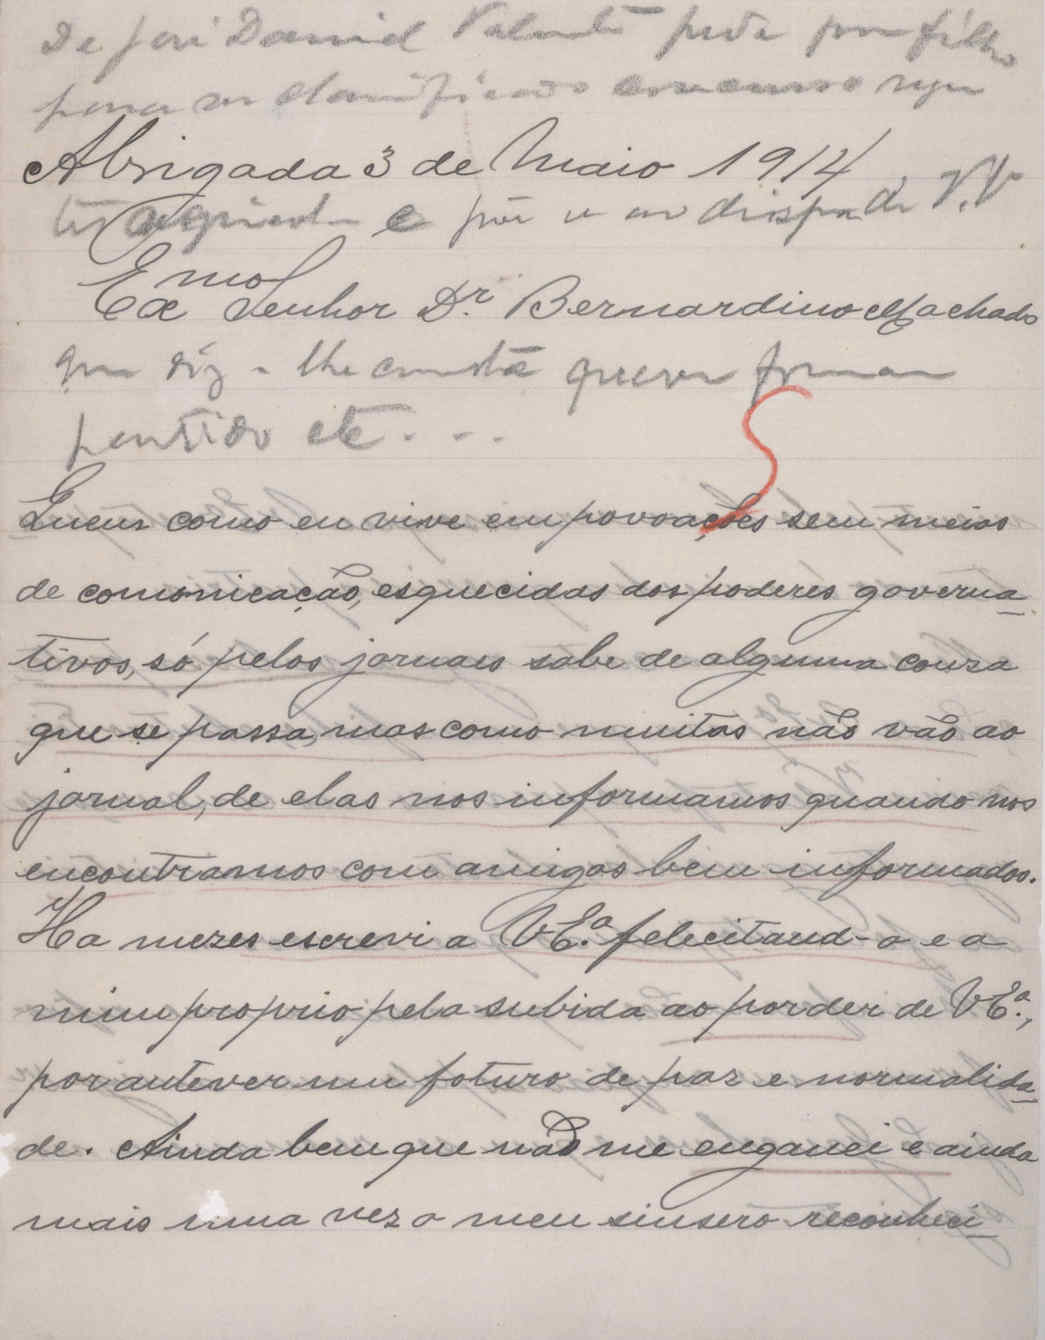 De José Daniel Valente pede por filho
para ser classificado concurso
Abrigada 3 de Maio 1914
e pôr se ao dispor de V.
Exmo Senhor Dr. Bernardino Machado
que diz lhe consta querer formar
partido etc...
S
Quem como eu vive em povoações sem meios
de comonicação, esquecidas dos poderes governa-
tivos, só pelos jornaes sabe de alguma couza
que se passa, mas como muitas não vão ao
jornal, de elas nos informamos quando nos
encontramos com amigos bem informados.
Ha mezes escrevi a VEª. felecitand-o e a
mim proprio pela subida ao porder de VEª.,
por antever um foturo de paz e normalida-
de. Ainda bem que não me enganei e ainda
mais uma vez o meu sinsero reconheci-